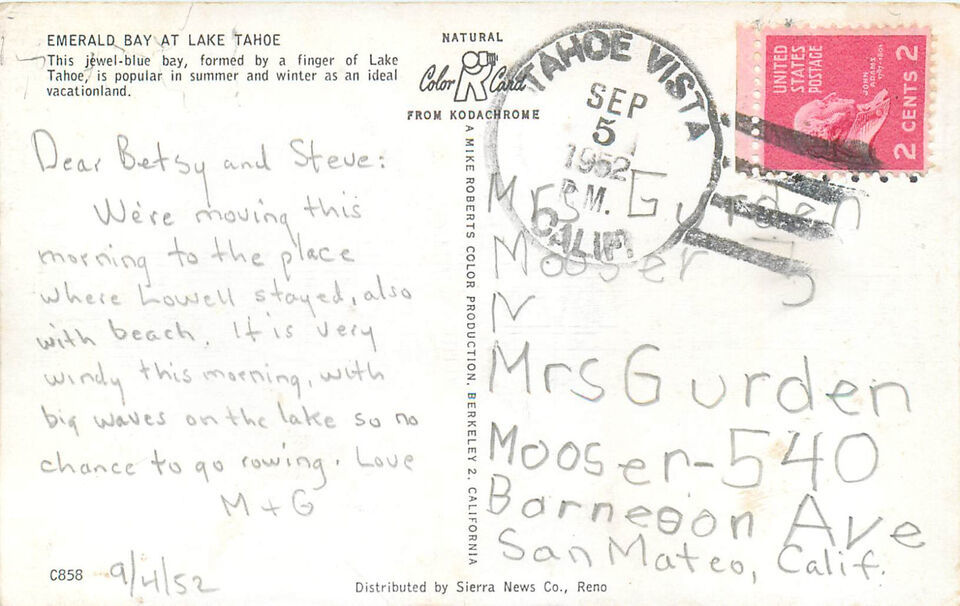 EMERALD BAY AT LAKE TAHOE
This jewel-blue bay, formed by a finger of Lake
Tahoe, is popular in summer and winter as an ideal
vacationland.
Dear Betsy and Steve:
We're moving this
morning to the place
where Lowell stayed, also
with beach. It is very
windy this morning, with
big waves on the lake so no
chance to go rowing. Love
M + G
C858
9/4/52
NATURAL
Color Card
FROM KODACHROME
A MIKE ROBERTS COLOR PRODUCTION, BERKELEY 2, CALIFORNIA
Distributed by Sierra News Co., Reno
TAHOE VISTA
SEP
5
1952
P.M.
CALIF.
UNITED
STATES
POSTAGE
JOHN
ADAMS
1797-1801
2 CENTS 2
Mrs Gurden
Mooser 5
M
Mrs Gurden
Mooser-540
Barneson Ave
San Mateo, Calif.